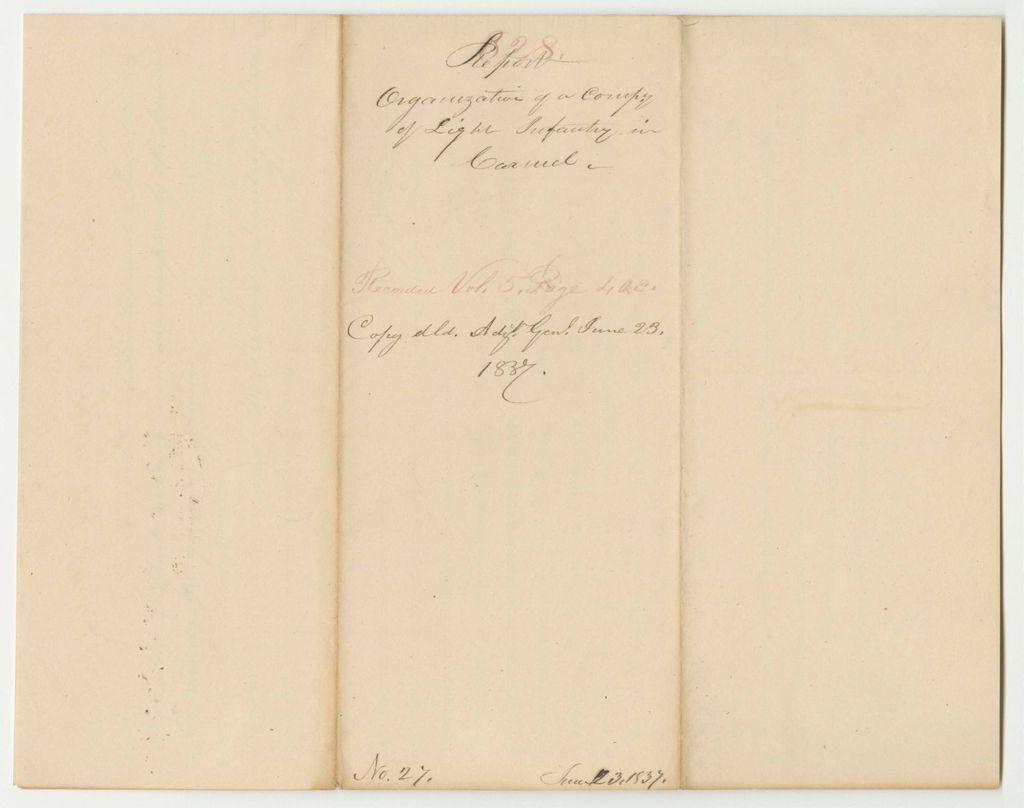 328.
Report
Organization of a Compy
of Light Infantry in
Carmel.
Recorded Vol. 5. Page
Copy dld. Adjt. Genl. June 23.
1837.
No. 27. June 1837.